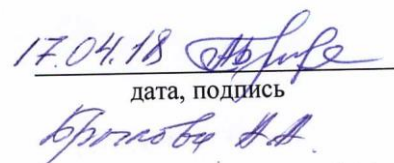 17.04.18
дата, подпись
Брыкова А.А.